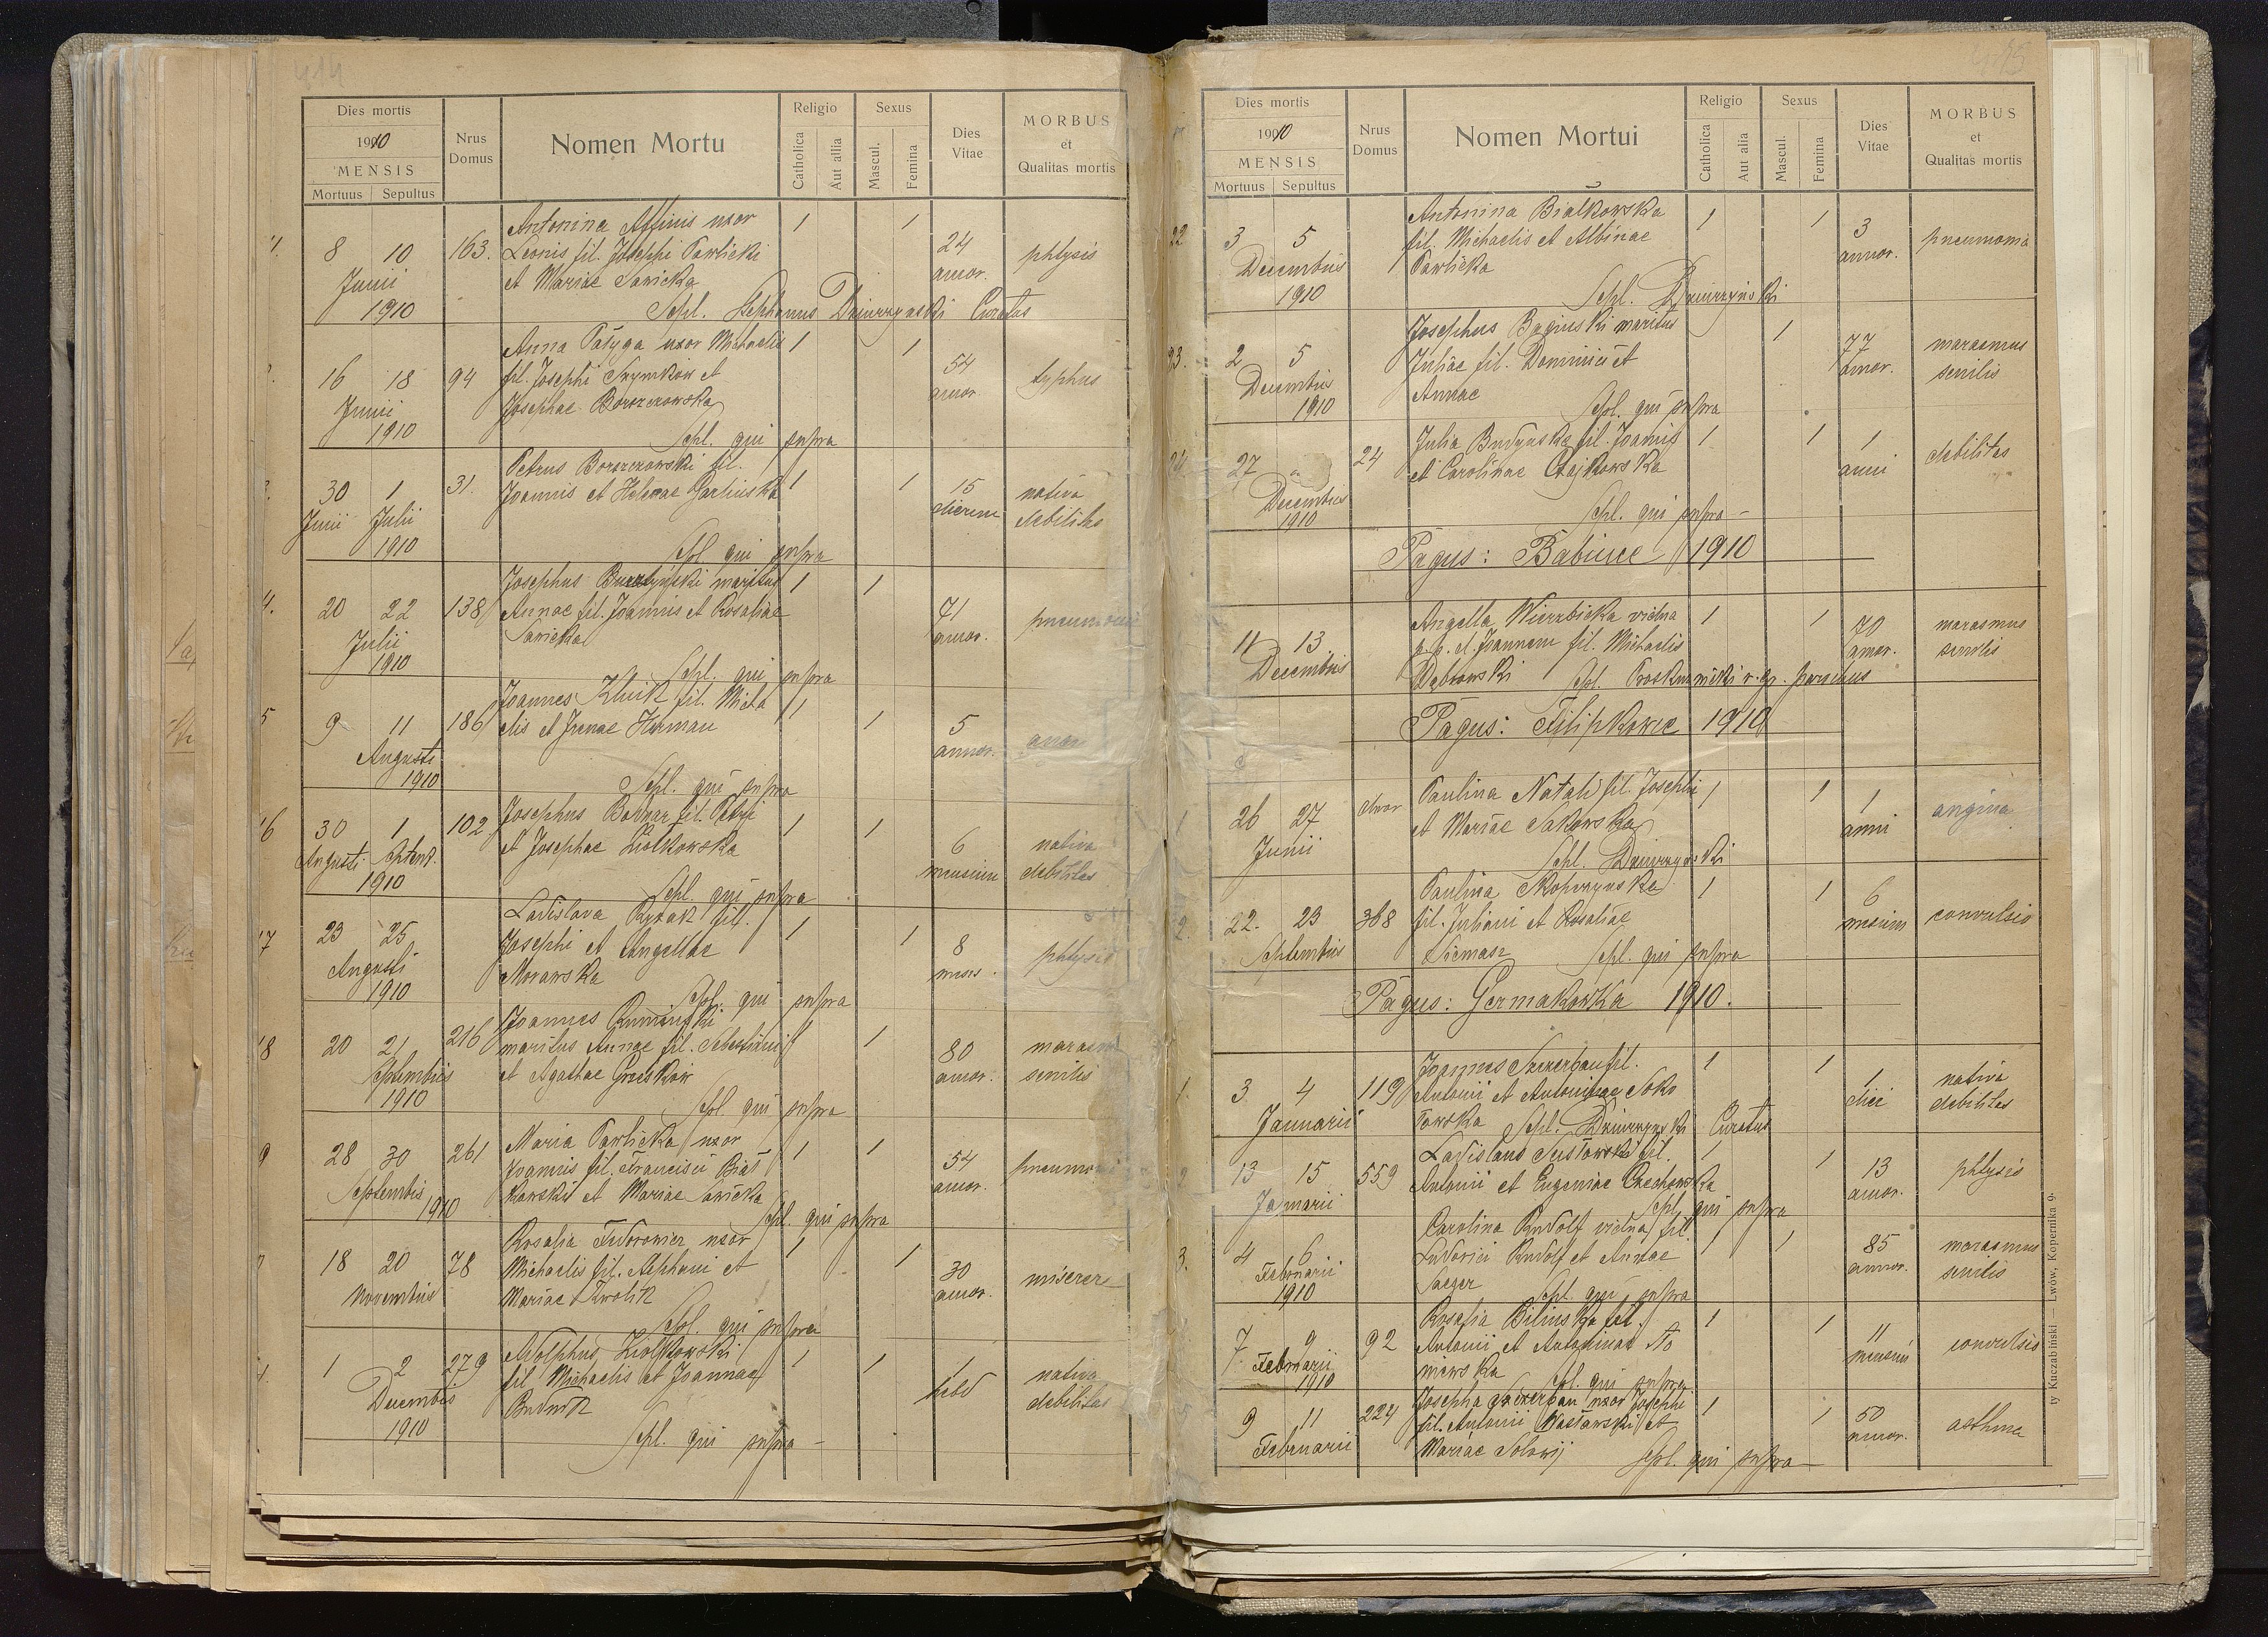 414
Dies mortis
1910
MENSIS
Mortuus Sepultus
Nrus Domus
Nomen Mortu
Religio
Catholica
Aut allia
Sexus
Mascul.
Femina
Dies Vitae
MORBUS
et
Qualitas mortis
Antonina uxor 1 1
8 10 163. Leonis fil. Josephi Pawlicki 24 phtysis
Junii et Mariae Sawicka annor.
1910 Sepl. Stephanus Dziurzyński Curatus
Anna Pałyga uxor Michaelis 1 1
16 18 94 fil. Josephi Szymków et 54 typhus
Junii Josephae Borszczowska annor.
1910 Sepl. qui supra
Petrus Borszczowski fil.
30 1 31. Joannis et Helenae 1 1 15 nativa
Junii Julii dierum debilitas
1910
Sepl. qui supra
Josephus Burdyński maritus 1 1
20 22 138 Annae fil. Joannis et Rosaliae 71 pneumonia
Julii Sawicka annor.
1910
Sepl. qui supra
Joannes fil. Micha
9 11 186 elis et Herman 1 1 5
Augusti annor.
1910
Sepl. qui supra
Josephus Bodnar fil. Petri
30 1 102 et Josephae Ziółkowska 1 1 6 nativa
Augusti Septemb. mensium debilitas
1910
Sepl. qui supra
Ladislava Ryżak fil.
17 23 25 Josephi et Angellae 1 1 8 phtysis
Augusti Morawska mens.
1910
Sepl. qui supra
Joannes
18 20 21 216 maritus Annae fil. Sebastiani 1 1 80 marasmus
Septembris et Agathae annor. senilis
1910
Sepl. qui supra
Maria Pawlicka uxor
28 30 261 Joannis fil. Francisci Biał 1 1 54 pneumonia
Septembris kowski et Mariae Sawicka annor.
1910 Sepl. qui supra
Rosalia Fedorowicz uxor
18 20 78 Michaelis fil. Stephani et 1 1 30 miserere
Novembris Mariae Kwolik annor.
Sepl. qui supra
Adolphus Ziółkowski
1 2 279 fil Michaelis et Joannae 1 1 1 nativa
Decembris Budnik hebd debilitas
1910
Sepl. qui supra
415
Dies mortis
1910
MENSIS
Mortuus Sepultus
Nrus Domus
Nomen Mortui
Religio
Catholica
Aut alia
Sexus
Mascul.
Femina
Dies Vitae
MORBUS
et
Qualitas mortis
Antonina Białkowska 1 1
22 3 5 fil. Michaelis et Albinae 3 pneumonia
Decembris Pawlicka annor.
1910 Sepl. Dziurzyński
Josephus maritus 1
23. 2 5 Juliae fil. Dominici et 77 marasmus
Decembris Annae annor. senilis
1910 Sepl. qui supra
Julia Budyńska fil. Joannis 1 1
24. 27 24 et Carolinae Czajkowska 1 debilitas
Decembris anni
1910 Sepl. qui supra
Pagus: Babince 1910
Angella Wierzbicka vidua 1 1
11 13 p. d. Joannem fil. Michaelis 70 marasmus
Decembris Dąbrowski annor. senilis
Sepl. r. gr. parochus
Pagus: Filipkowce 1910
26 27 dwor Paulina Natali fil. Josephi 1 1 1 angina
Junii et Mariae Sakowska anni
Sepl. Dziurzyński
Paulina Skopczyńska 1 1
2. 22. 23 368 fil. Juliani et Rosaliae 6 convulsio
Septembris Siemasz mensium
Sepl. qui supra
Pagus: Germakówka 1910.
Joannes Szczerban fil. 1 1
1. 3 4 119 Antonii et Antoninae Soko 1 nativa
Januarii łowska diei debilitas
Sepl. Dziurzyński Curatus
Ladislaus fil. 1 1
13 15 559 Antonii et Eugeniae Czechowska 13 phtysis
Januarii annor.
Sepl. qui supra
Carolina Rudolf vidua fil.
3. 4 6 Ludovici Rudolf et Annae 1 1 85 marasmus
Februarii Saeger annor. senilis
1910 Sepl. qui supra
Rosalia Bilinska fil. 1 1
7 9 92 Antonii et Antoninae 11 convulsio
Februarii mensium
1910 Sepl. qui supra
Josepha Szczerban uxor Josephi 1 1
9 11 224 fil. Antonii et 50 asthma
Februarii Mariae Solowij annor.
Sepl. qui supra
ty Kuczabiński — Lwów, Kopernika 9.